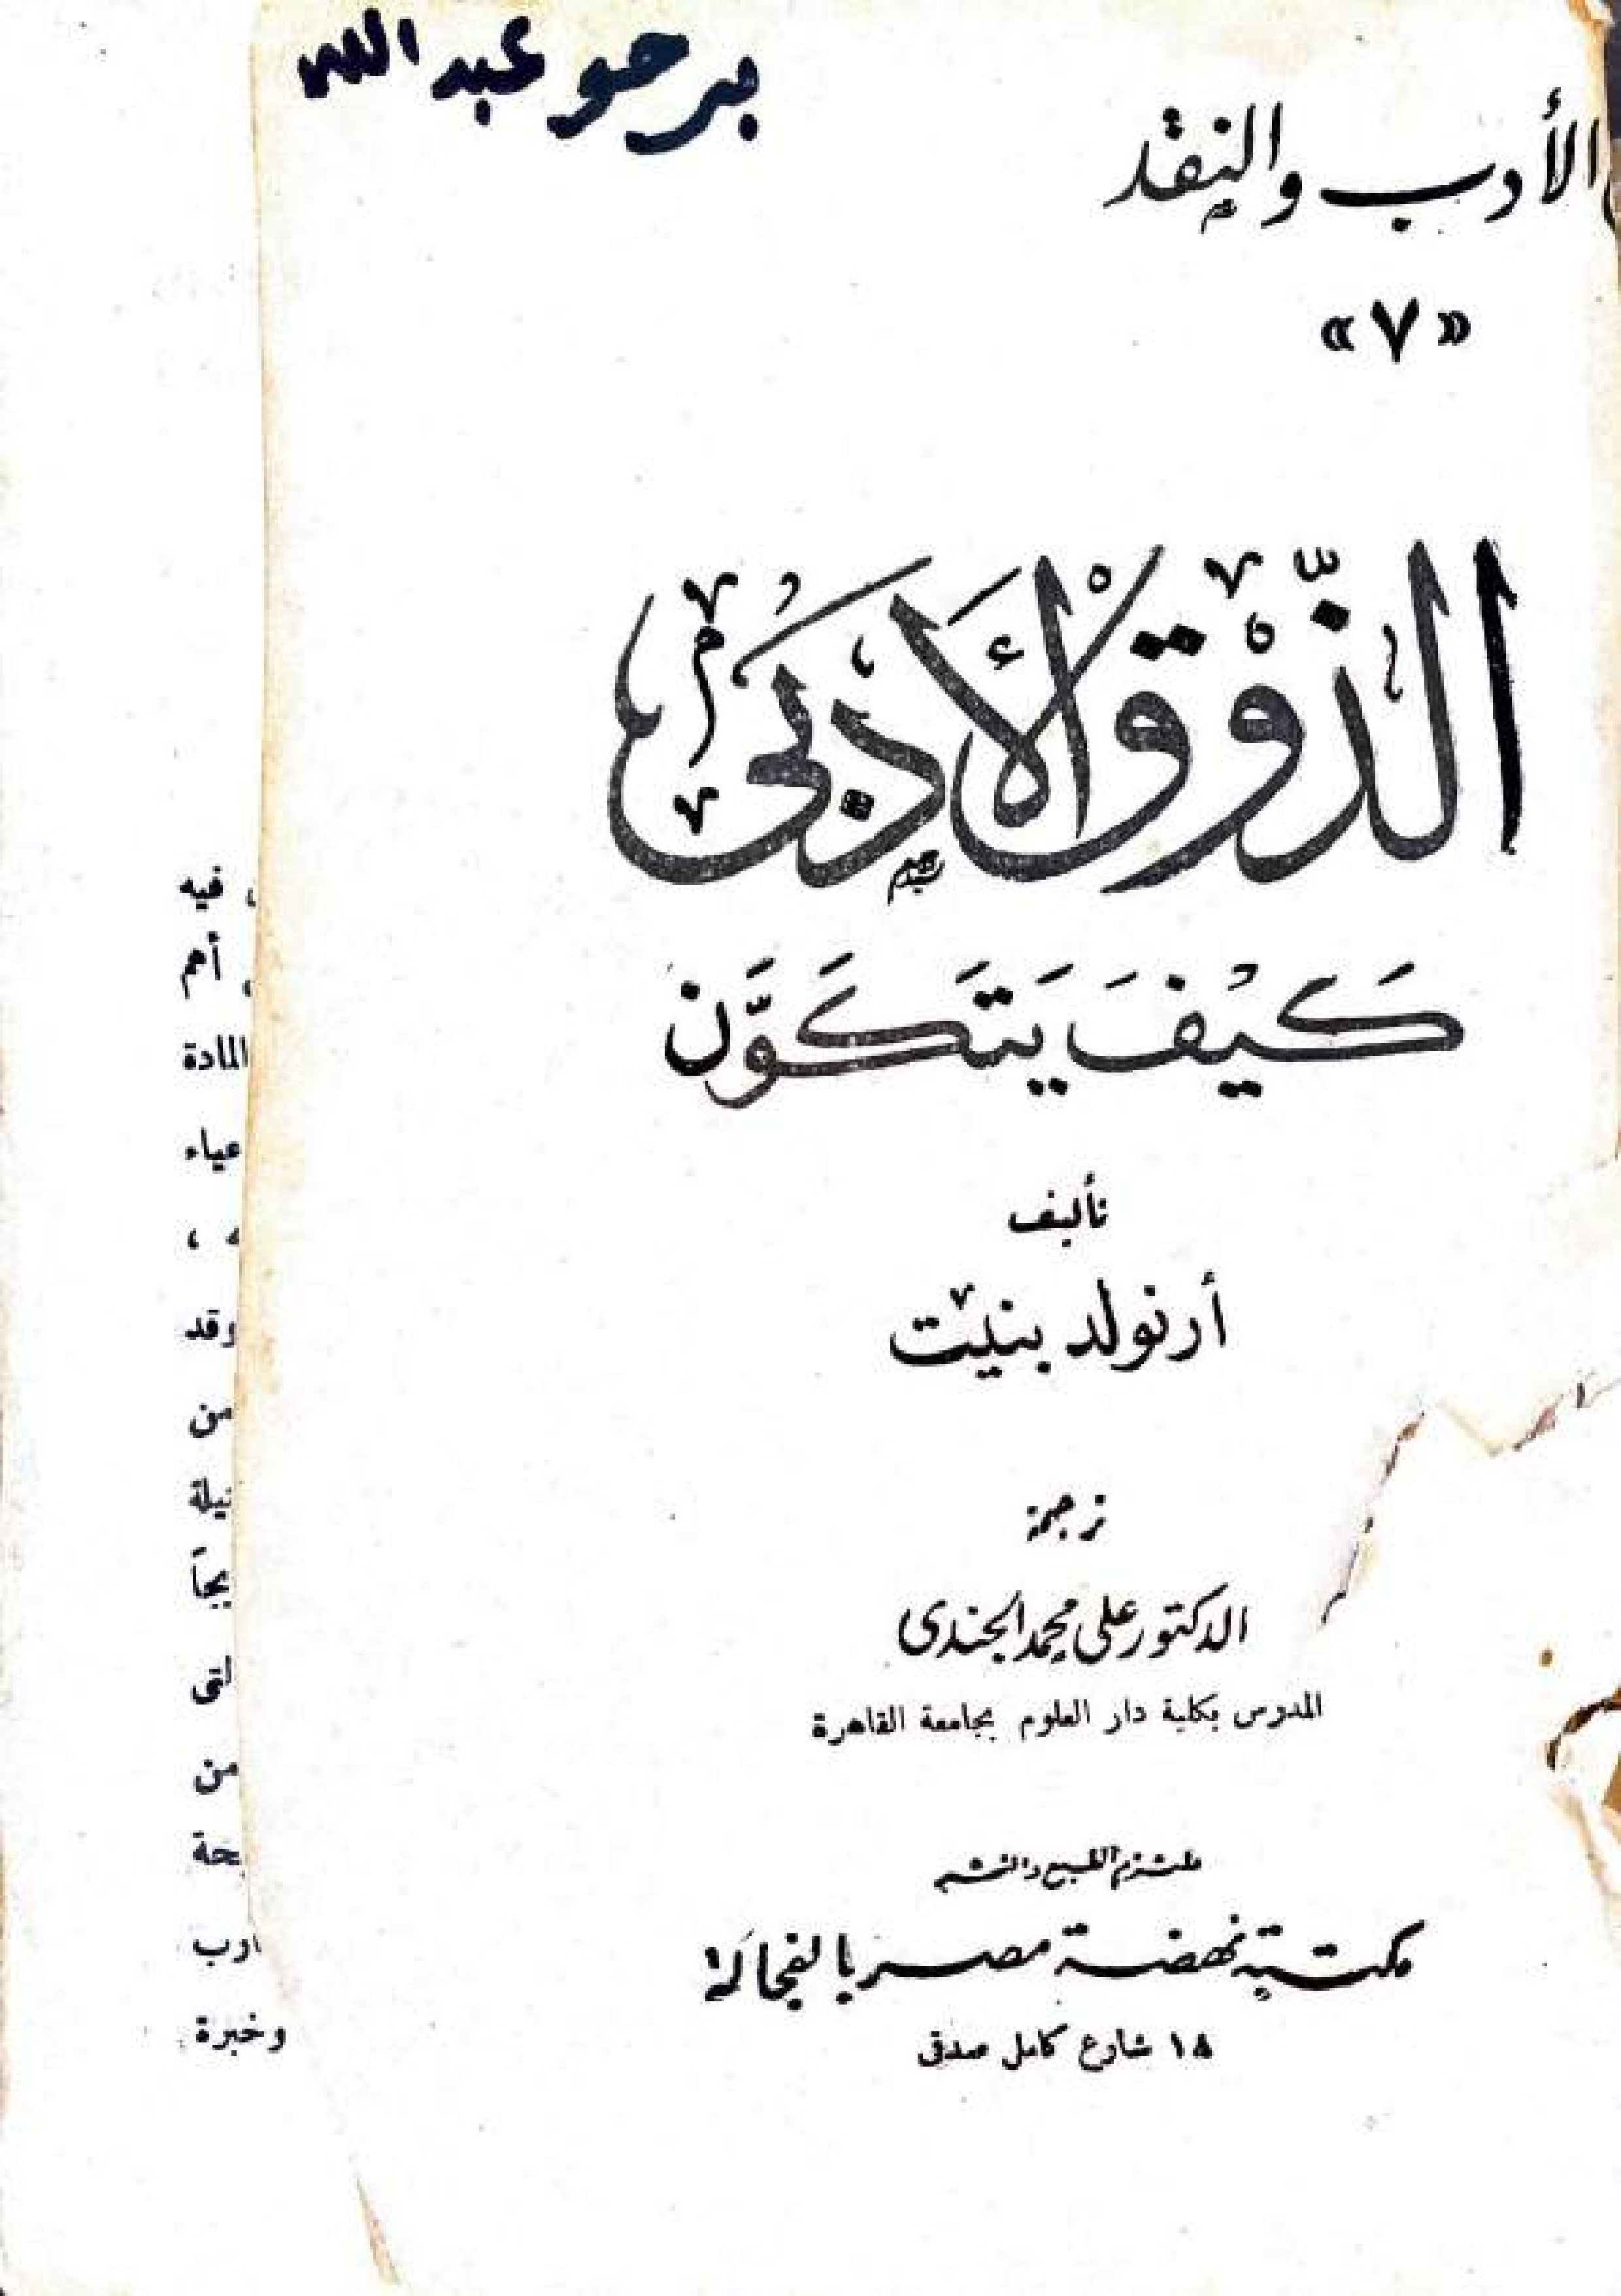 برحو عبد الله
الأدب والنقد
«٧»
الذَّوْق الْأَدَبىُّ
كَيْفَ يَتَكَوَّن
تأليف
أرنولد بنيت
ترجمة
الدكتور على محمد الجندى
المدرس بكلية دار العلوم بجامعة القاهرة
ملتزم الطبع والنشر
مكتبة نهضة مصر بالفجالة
١٨ شارع كامل صدقى
، فيه
أهم
المادة
عياء
،
وقد
من
لقى
من
وخبرة